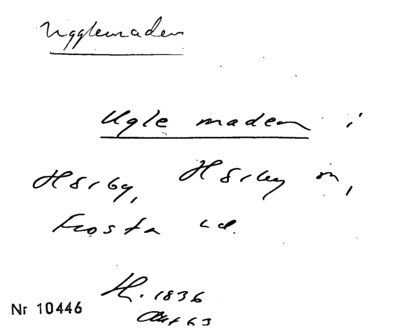 Ugglemaden
Ugle maden i
Hörby, Hörby sn,
Frosta hd.
H. 1836
Akt 63
Nr 10446